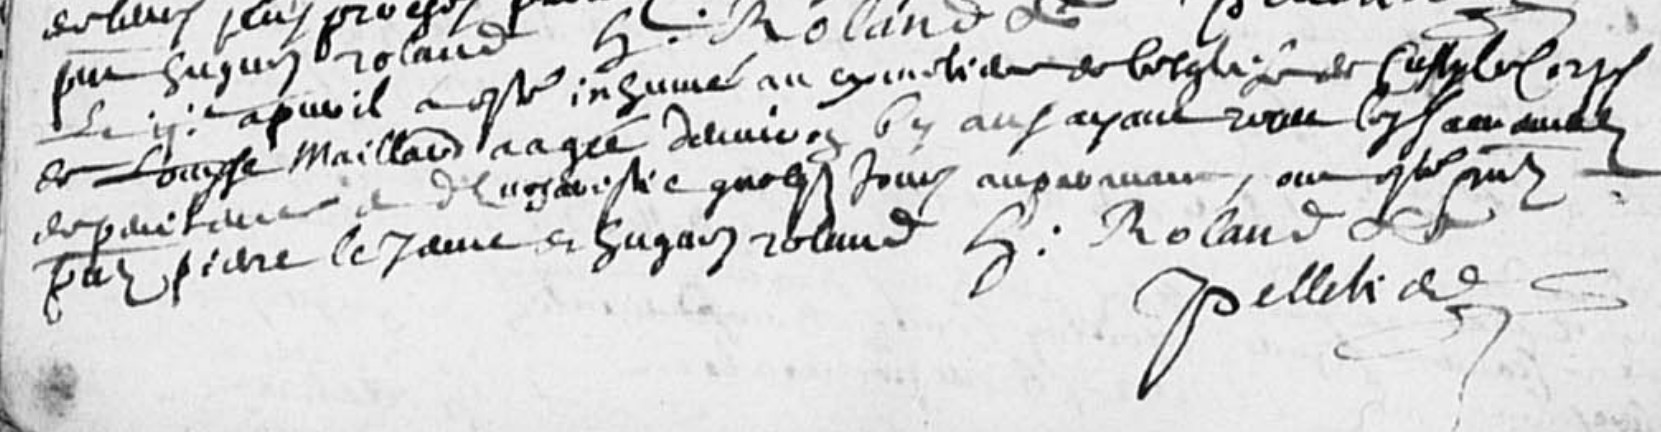 de leurs plus proches
pnt hugues roland H: Roland
Le ij.e apvril a esté inhumé au cymetiere de leglise de le Corps
de Louyse Maillard aagée denviron ans ayant receu les sacremens
de penitence et de l'eucharistie quelqs jours auparavant, ont esté pntz
pntz pierre le Jeune et hugues roland H: Roland
Pelletier